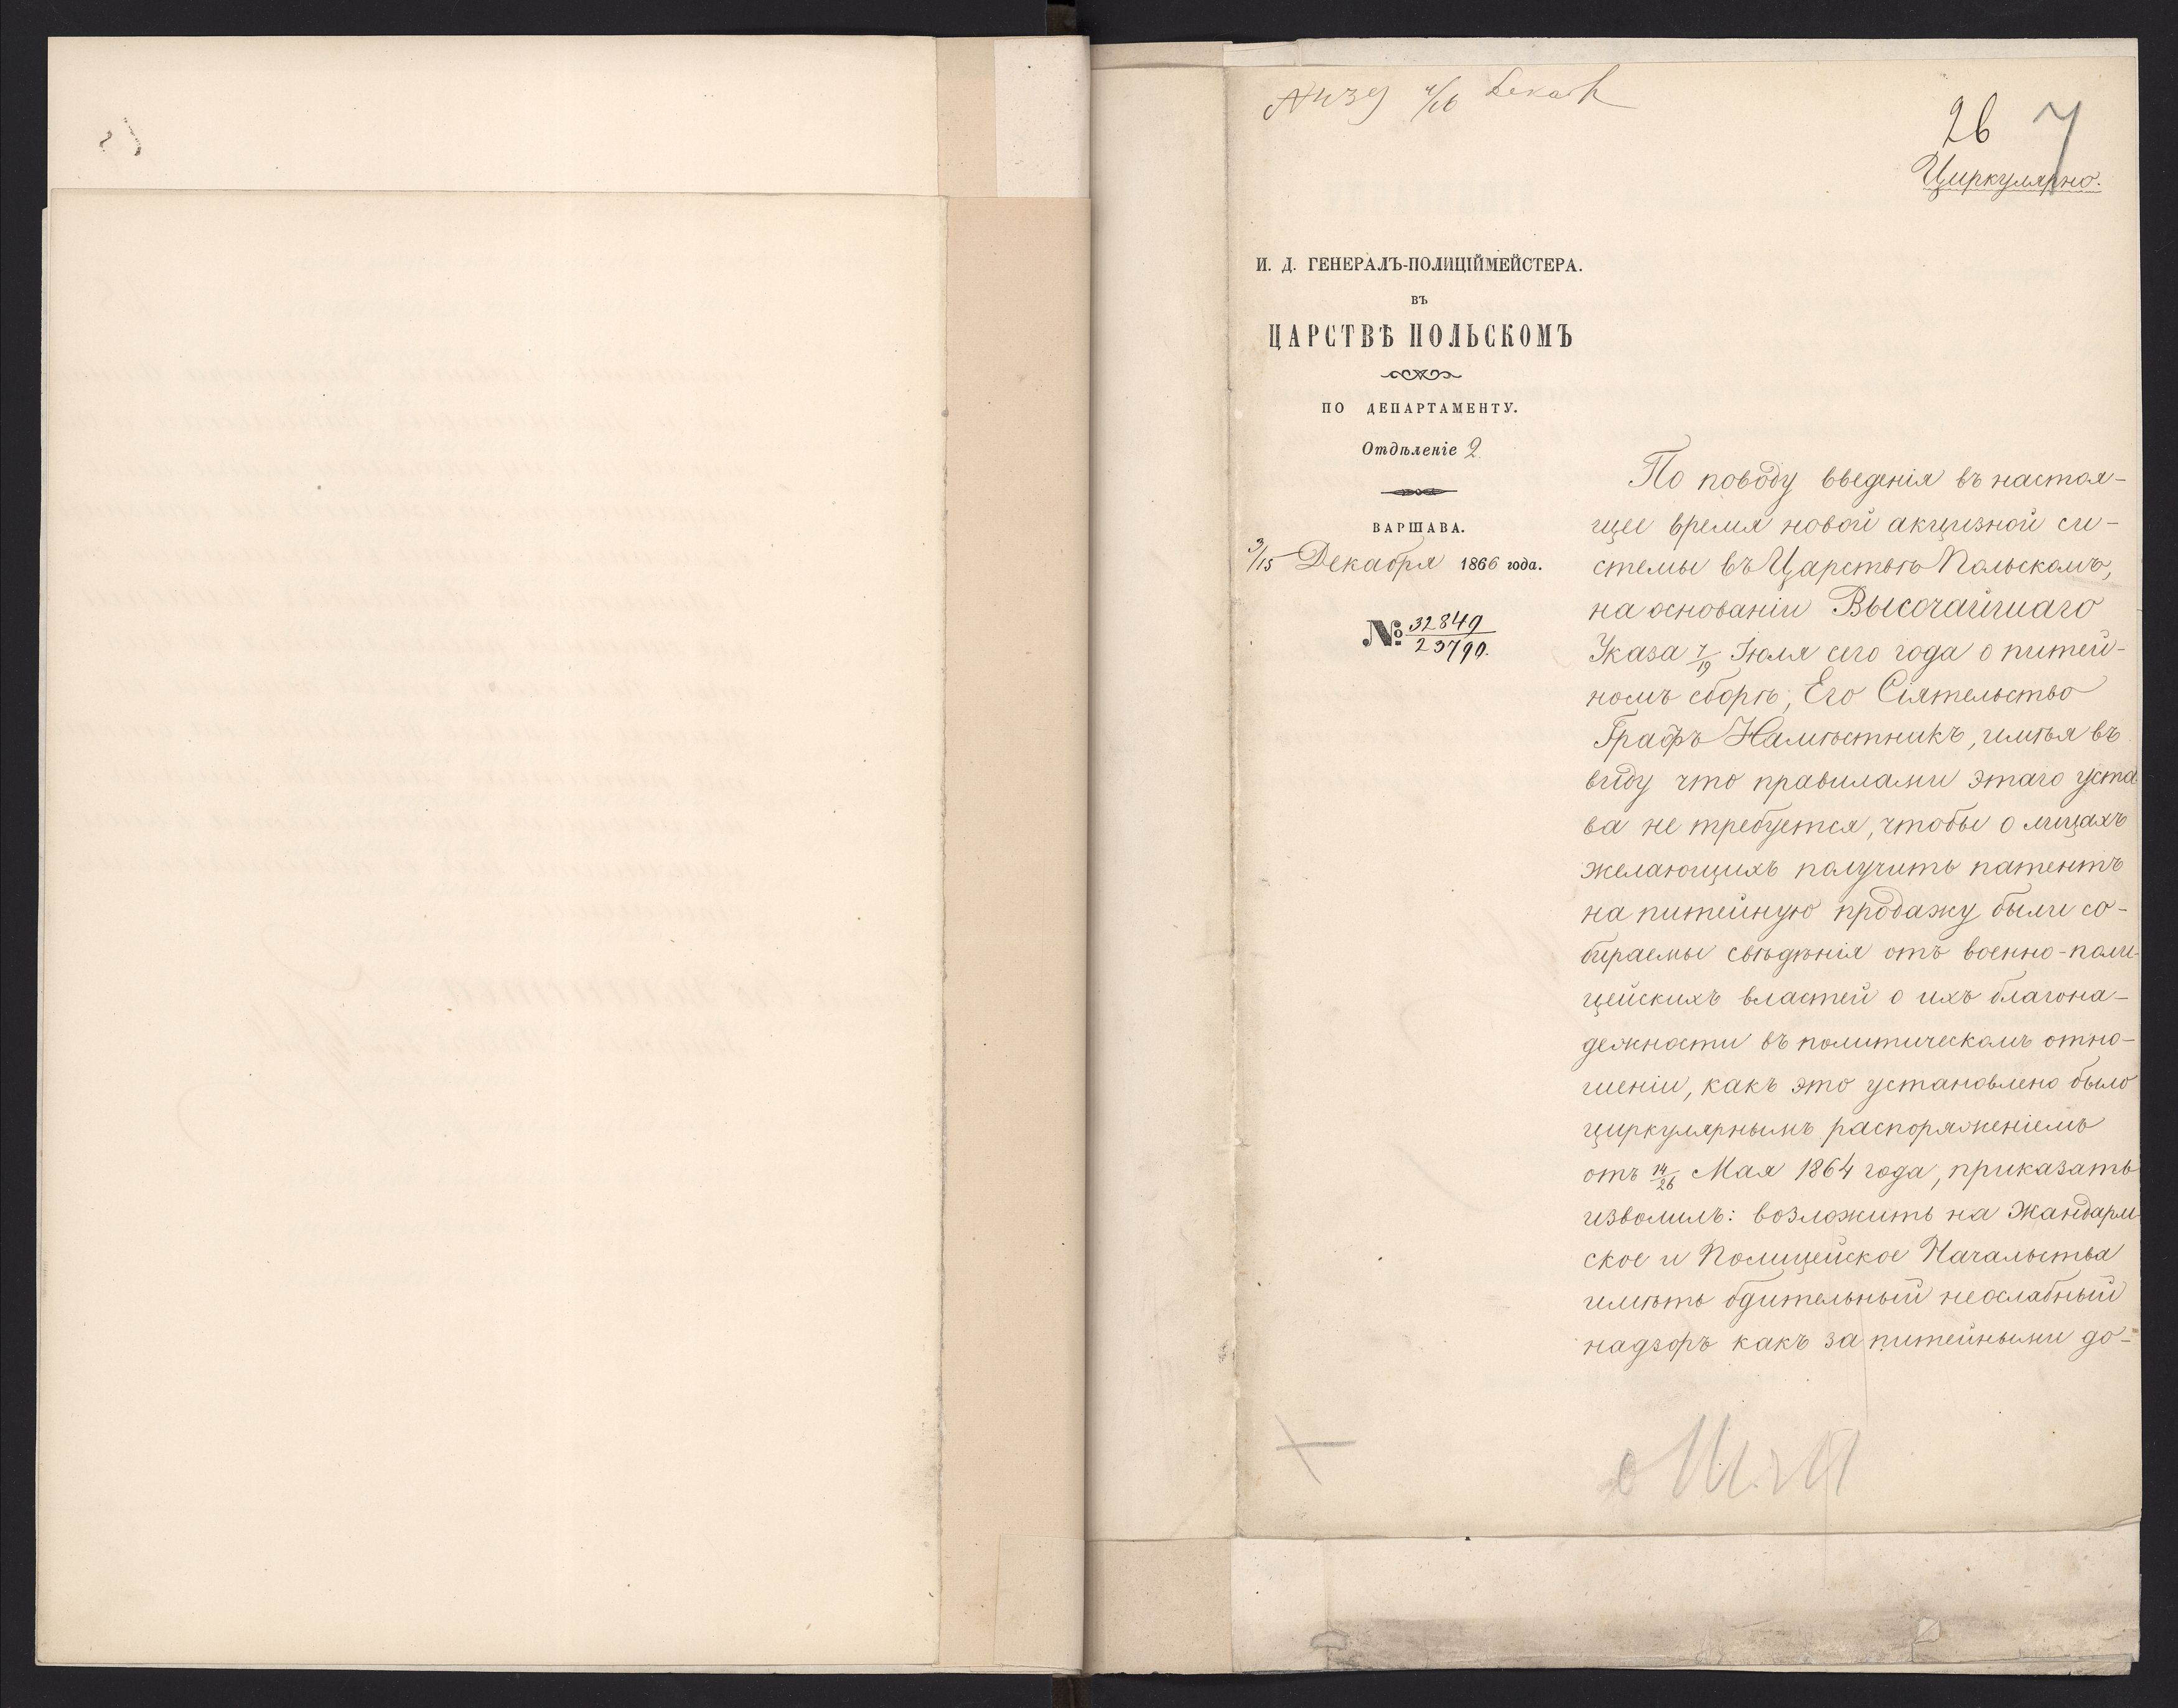 26 7
Циркулярно.
И. Д. ГЕНЕРАЛЪ-ПОЛИЦІЙМЕЙСТЕРА.
ВЪ
ЦАРСТВѢ ПОЛЬСКОМЪ
ПО ДЕПАРТАМЕНТУ.
Отдѣленіе 2
ВАРШАВА.
3/15 Декабря 1866 года.
№ 32849/23790.
По поводу введенія въ настоя-
щее время новой акцизной си-
стемы въ Царствѣ Польскомъ,
на основаніи Высочайшаго
Указа 7/19 Іюля сего года о питей-
номъ сборѣ, Его Сіятельство
Графъ Намѣстникъ, имѣя въ
виду что правилами этаго уста
ва не требуется, чтобы о лицахъ
желающихъ получить патентъ
на питейную продажу были со-
бираемы свѣдѣнія отъ военно-поли-
цейскихъ властей о ихъ благона-
дежности въ политическомъ отно-
шеніи, какъ это установлено было
циркулярнымъ распоряженіемъ
отъ 14/26 Мая 1864 года, приказать
изволилъ: возложить на Жандарм-
ское и Полицейское Начальства
имѣть бдительный неослабный
надзоръ какъ за питейными до-